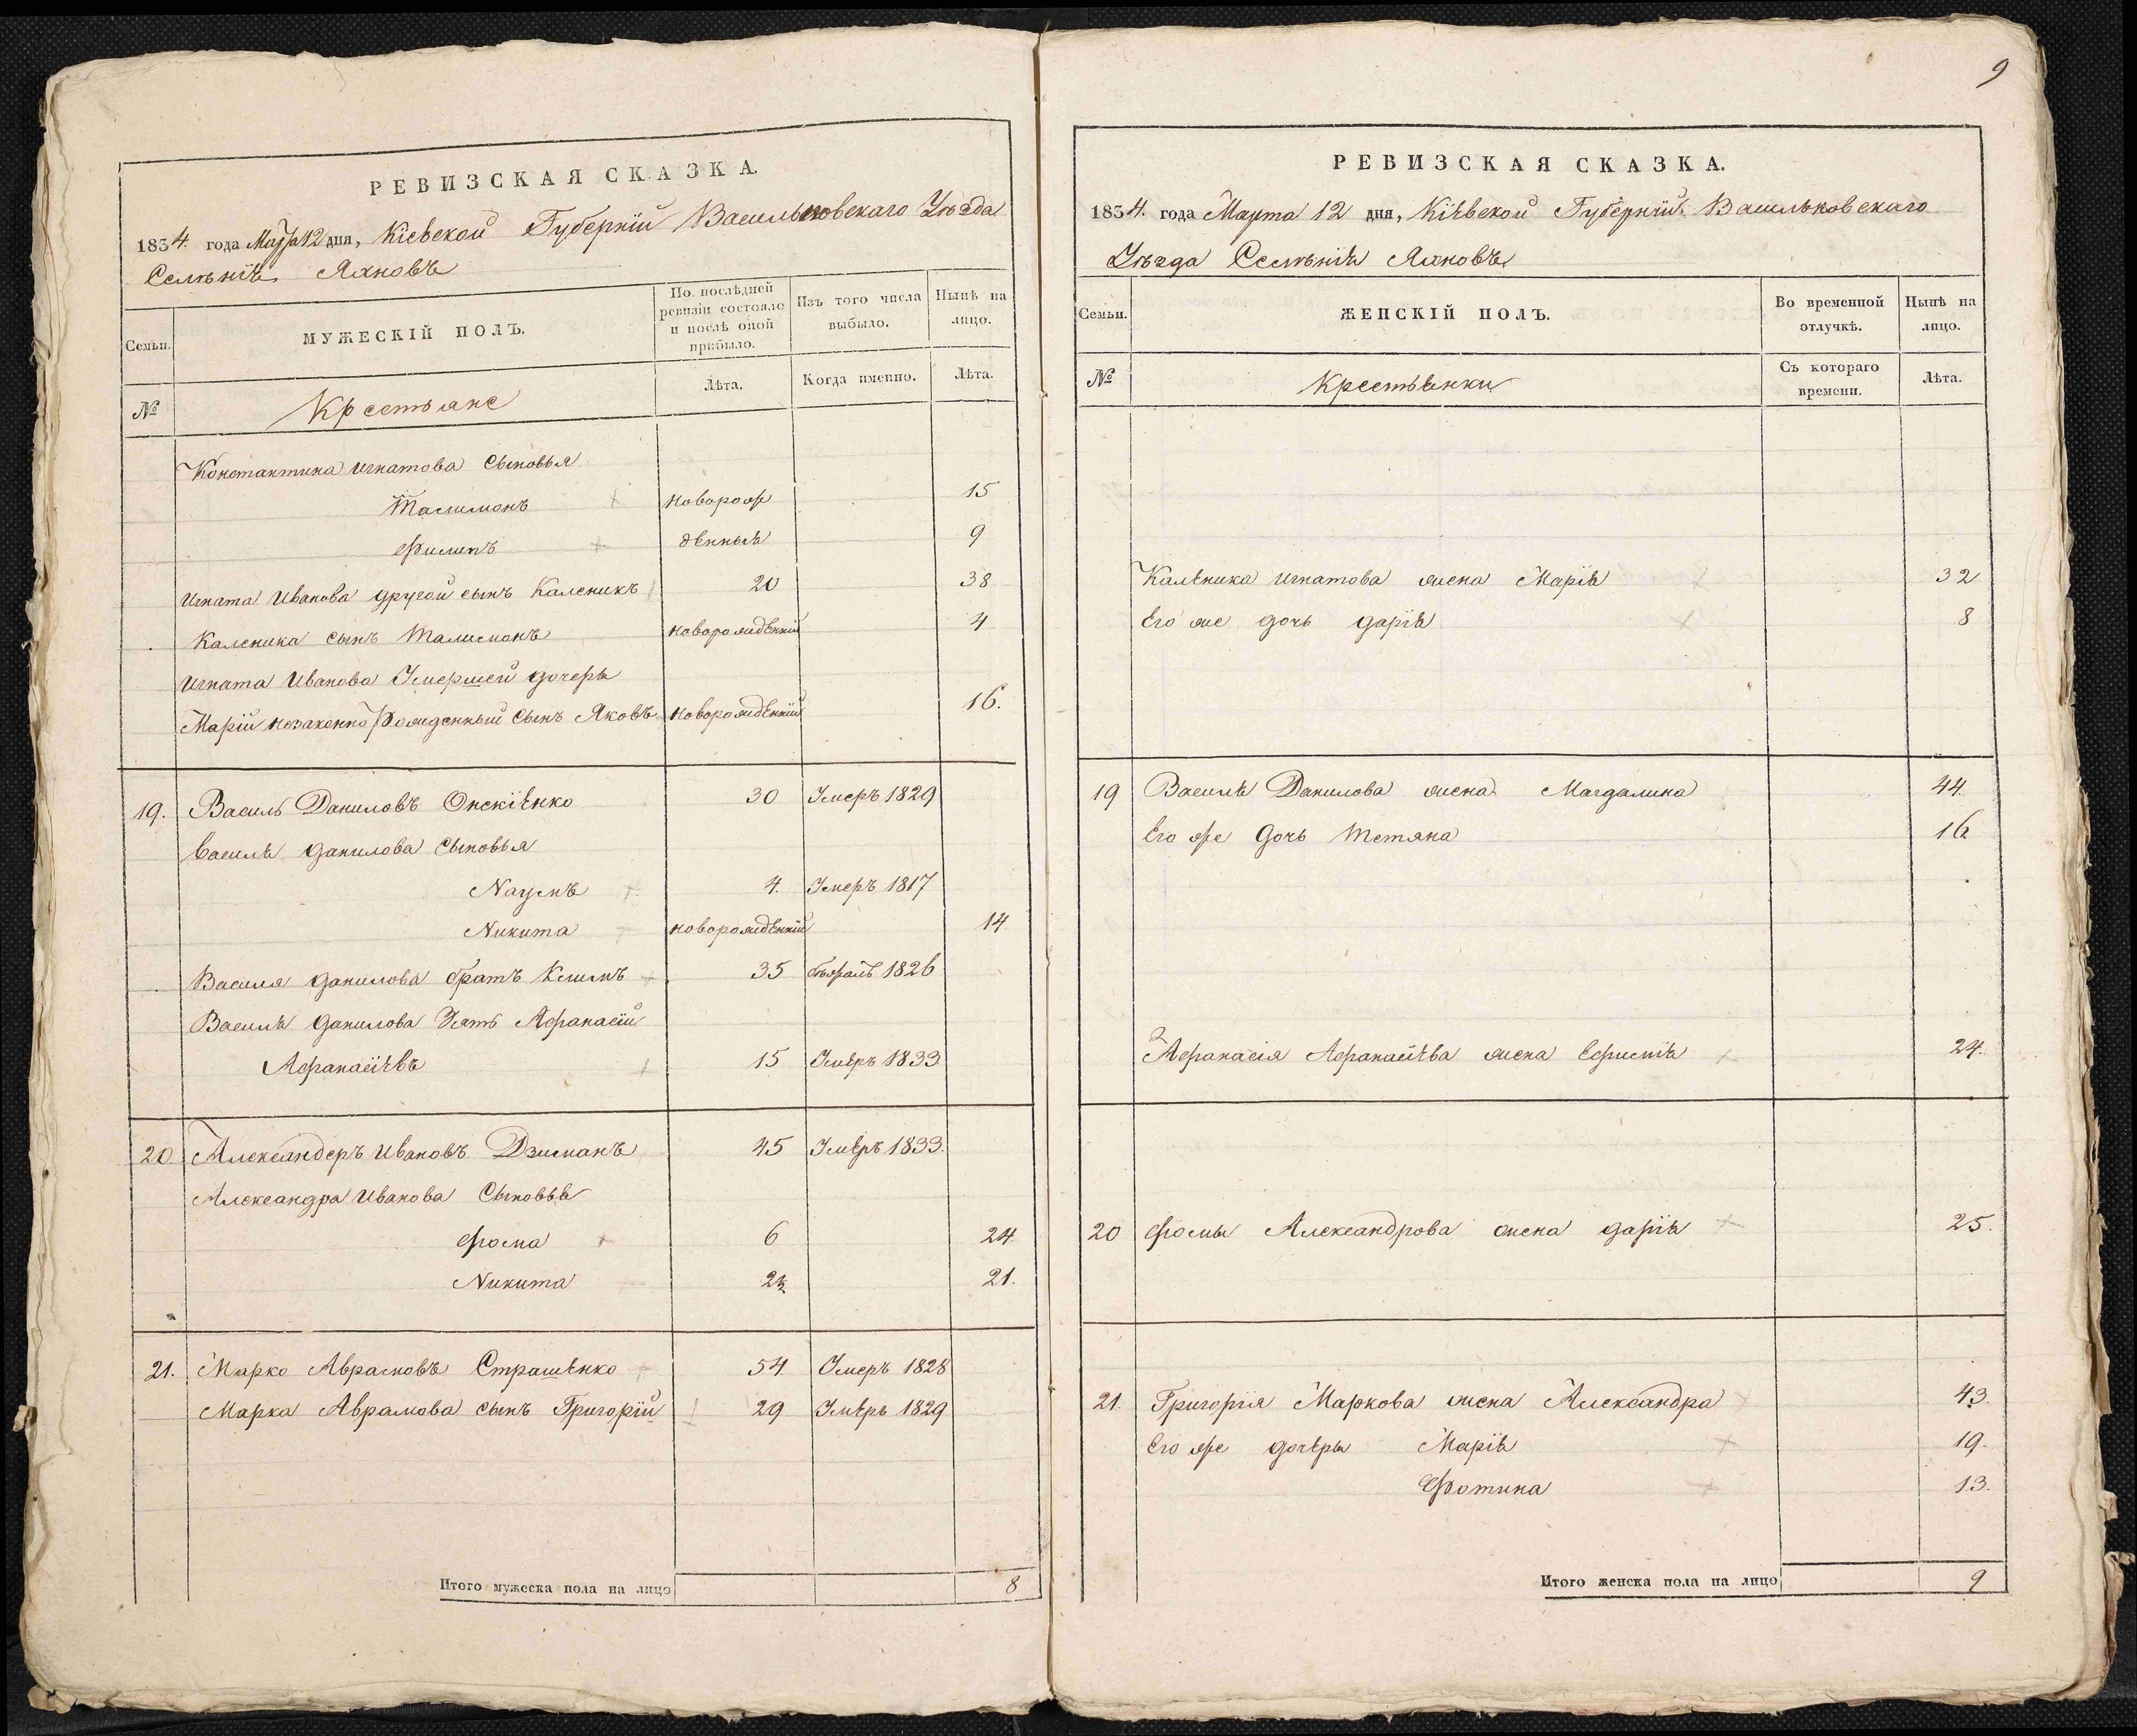 РЕВИЗСКАЯ СКАЗКА.
1834. года Марта 12 дня, Кіевской Губерніи Васильковскаго Уѣзда
Селѣнія Яхновъ
Семьи.
МУЖЕСКІЙ ПОЛЪ.
По послѣдней ревизіи состояло и послѣ оной прибыло.
Изъ того числа выбыло.
Нынѣ на лицо.
№
Крестьяне
Лѣта.
Когда именно.
Лѣта.
Константина Игнатова Сыновья
Талимонъ новорож 15
Филипъ денныя 9
Игната Иванова другой сынъ Каленикъ 20 38
Каленика сынъ Талимонъ новорожденній 4
Игната Иванова Умершей дочеры
Маріи незаконно Рожденный сынъ Яковъ новорожденній 16.
19. Василь Даниловъ Онскіенко 30 Умеръ 1829
Василя Данилова Сыновья
Наумъ 4. Умеръ 1817
Никита новорожденній 14
Василя Данилова братъ Климъ 35 бѣжалъ 1826
Василя Данилова Зять Афанасій
Афанасіевъ 15 Умеръ 1833
20. Александеръ Ивановъ Дзиманъ 45 Умеръ 1833.
Александра Иванова Сыновья
Фома 6 24
Никита 21.
21. Марко Аврамовъ Страшенко 54. Умеръ 1828
Марка Аврамова сынъ Григорій 29 Умеръ 1829
Итого мужеска пола на лицо 8
9
РЕВИЗСКАЯ СКАЗКА.
1834. года Марта 12 дня, Кіевской Губерніи Васильковскаго
Уѣзда Селѣнія Яхновъ
Семьи.
ЖЕНСКІЙ ПОЛЪ.
Во временной отлучкѣ.
Нынѣ на лицо.
№
Крестьянки
Съ котораго времени.
Лѣта.
Каленика Игнатова жена Марія 32
Его же дочь Дарія 8
19 Василя Данилова жена Магдалина 44.
Его же Дочь Тетяна 16
Афанасія Афанасіева жена Ефимія 24.
20 Фомы Александрова жена Дарія 25.
21. Григорія Маркова жена Александра 43.
Его же дочеры Марія 19.
Фотина 13.
Итого женска пола на лицо 9